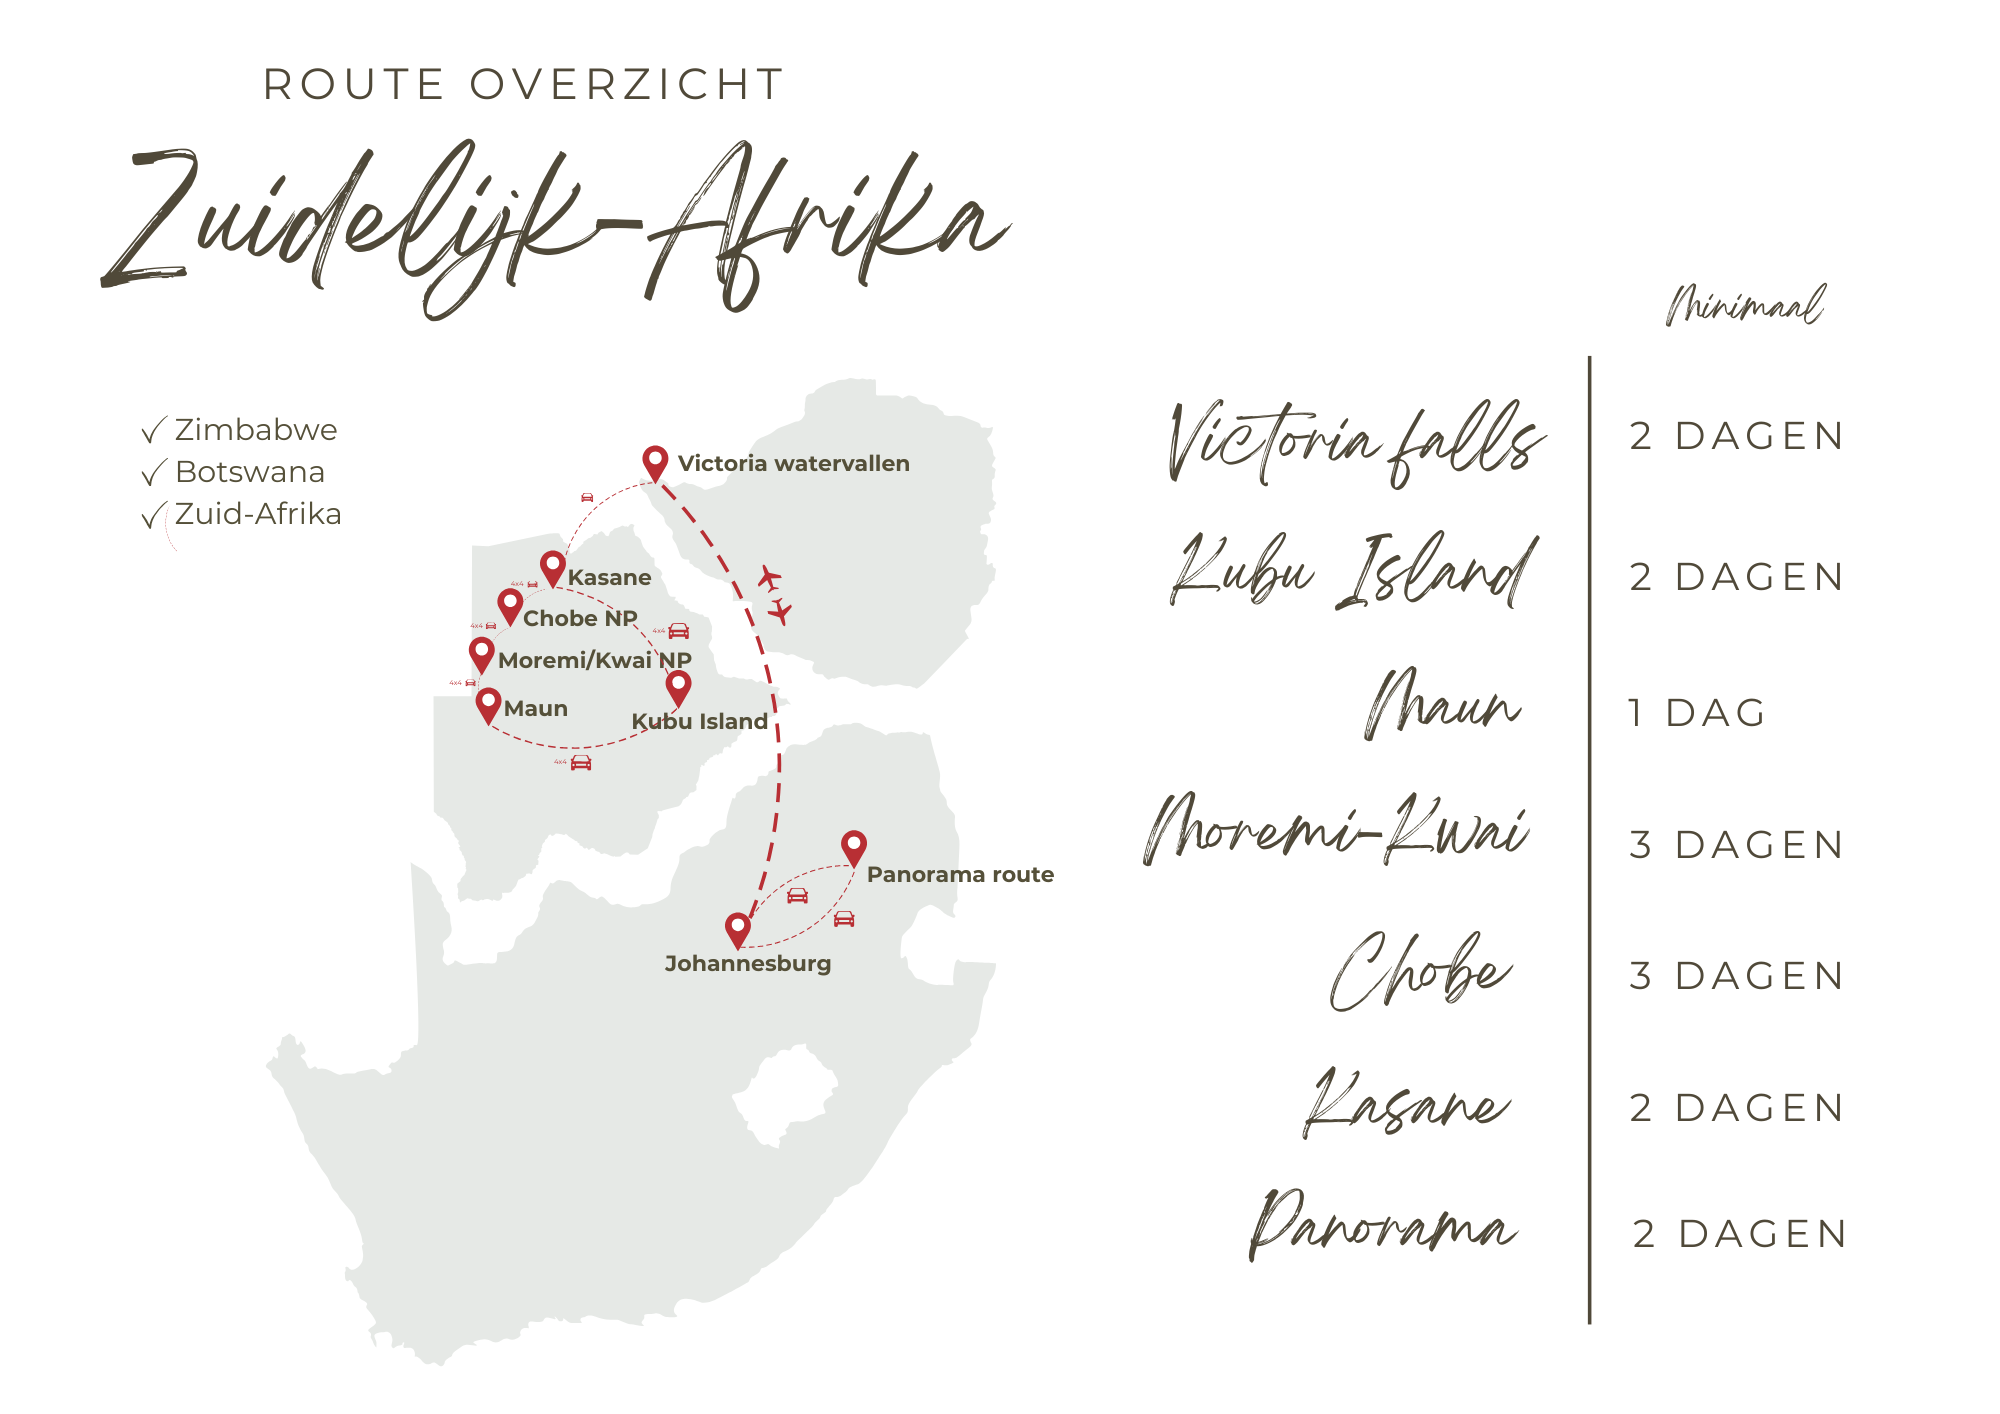 ROUTE OVERZICHT
Zuidelijk-Afrika
Zimbabwe
Botswana
Zuid-Afrika
Victoria watervallen
Kasane
4x4
Chobe NP
4x4
4x4
Moremi/Kwai NP
4x4
Maun
Kubu Island
4x4
Panorama route
Johannesburg
Minimaal
Victoria falls 2 DAGEN
Kubu Island 2 DAGEN
Maun 1 DAG
Moremi-Kwai 3 DAGEN
Chobe 3 DAGEN
Kasane 2 DAGEN
Panorama 2 DAGEN